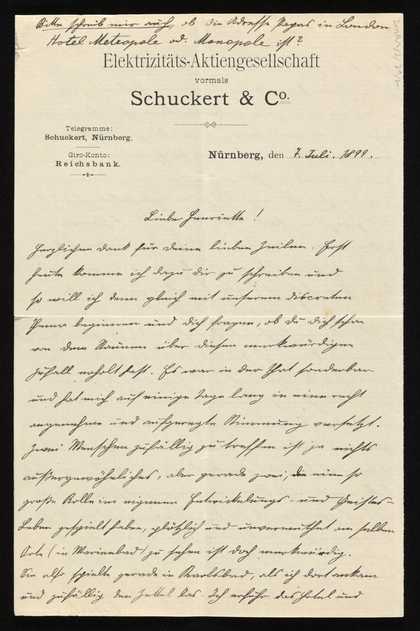 Bitte schreib mir auch, ob die Adresse Papas in London
Hotel Metropole od. Monopole ist?
Elektrizitäts-Aktiengesellschaft
vormals
Schuckert & Co.
Telegramme:
Schuckert, Nürnberg.
Giro-Konto:
Reichsbank.
Nürnberg, den 7. Juli. 1899.
Liebe Henriette!
Herzlichen Dank für deine lieben Zeilen. Erst
heute komme ich dazu dir zu schreiben und
so will ich denn gleich mit unserem discreten
beginnen und dich fragen, ob du dich schon
von dem Staunen über diesen merkwürdigen
Zufall erholt hast. Es war in der That sonderbar
und hat mich auf einige Tage lang in eine recht
angenehme und aufgeregte Stimmung versetzt.
Zwei Menschen zufällig zu treffen ist ja nichts
außergewöhnliches, aber gerade zwei, die eine so
große Rolle im eigenen Entwickelungs- und Geistes-
Leben gespielt haben, plötzlich und unvermuthet am selben
Orte (in Marienbad) zu sehen ist doch merkwürdig.
Sie also spielte gerade in Karlsbad, als ich dort ankam
und zufällig den Zettel las. Ich erfuhr das Hotel und